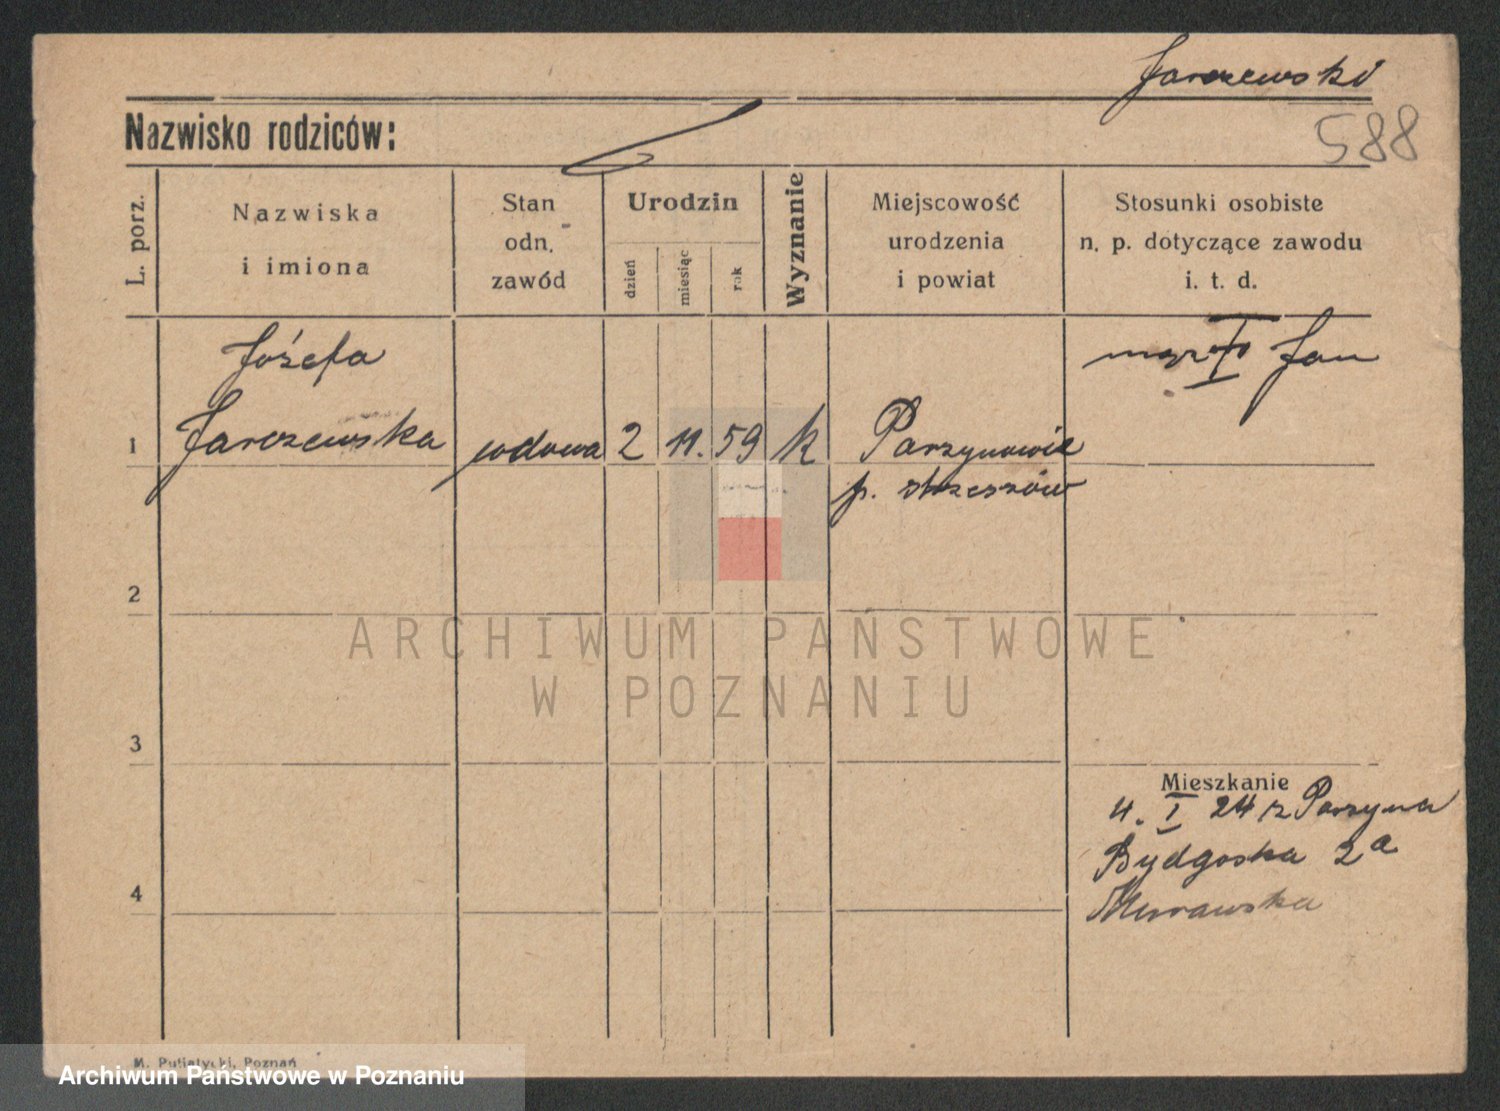 Jarczewski
Nazwisko rodziców:
588
L. porz.
Nazwiska
i imiona
Stan
odn.
zawód
Urodzin
dzień
miesiąc
rok
Wyznanie
Miejscowość
urodzenia
i powiat
Stosunki osobiste
n. p. dotyczące zawodu
i. t. d.
Józefa
Jan
1 Jarczewska wdowa 2 11. 59 k Parzynowie
p.
2
ARCHIWUM PAŃSTWOWE
W POZNANIU
3
Mieszkanie
4. I 24 z Parzyna
Bydgoska 2a
4
Murawska
M. Putiatycki, Poznań
Archiwum Państwowe w Poznaniu